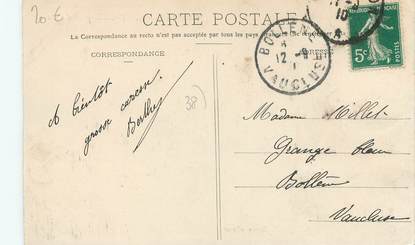 20 €
CARTE POSTALE
La Correspondance au recto n'est pas acceptée par tous les pays
CORRESPONDANCE
BOLLÈNE
12 -9
VAUCLUSE
10
5c
38)
A bientôt
grosse caresse
Berthe
Madame Millet
Grange blanc
Bollène
Vaucluse